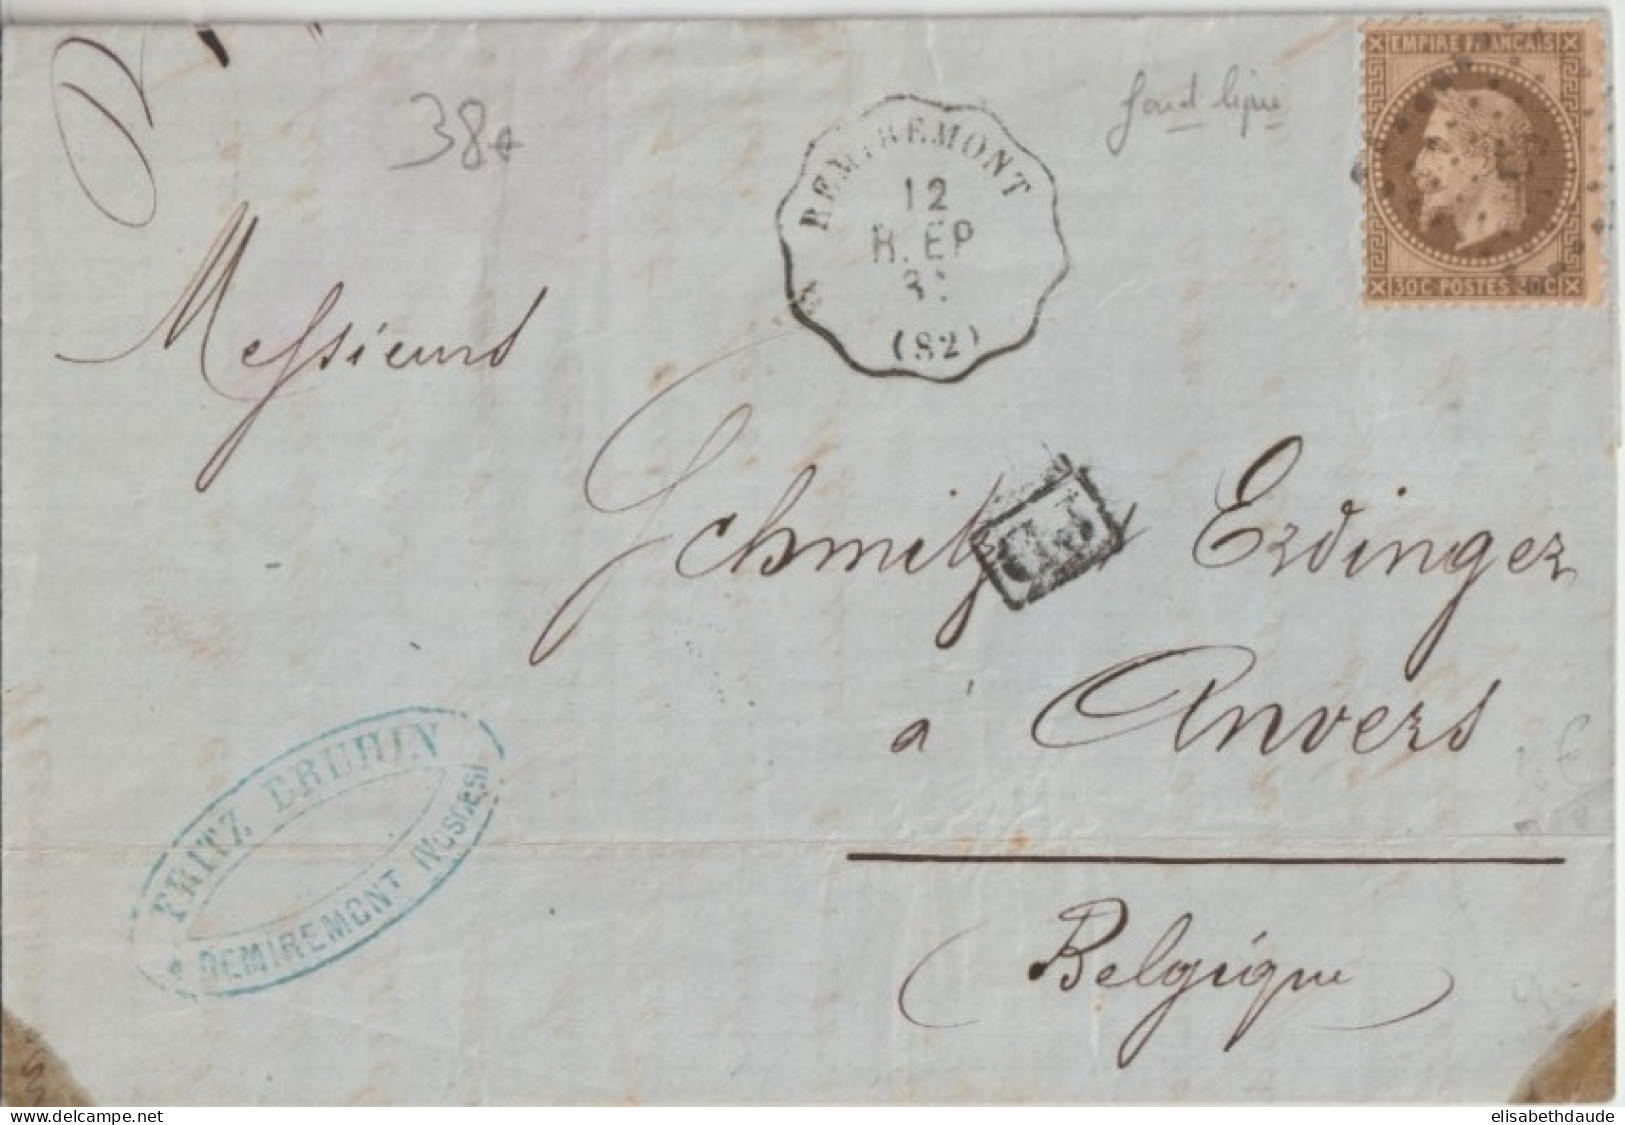 38
fond ligné
EMPIRE FRANÇAIS
30C POSTES 30C
REMIREMONT
12
R. EP
(82)
Messieurs
Schmitz Erdinger
P.D.
à Anvers
FRITZ
REMIREMONT (VOSGES)
Belgique
elisabethdaude